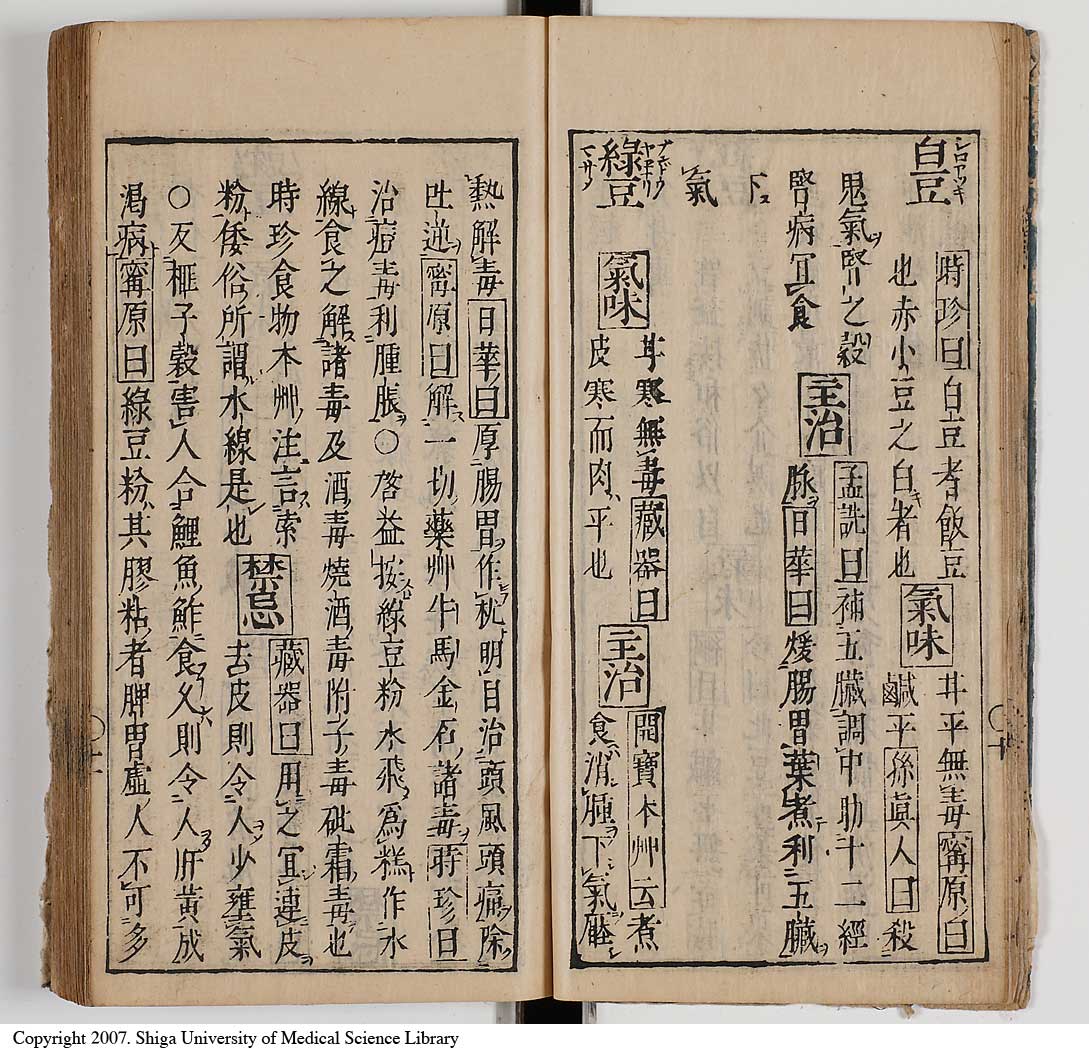 白豆 時珍曰白豆者飯豆
也赤小豆之白者也 氣味 甘平無毒 寗原曰
鹹平 孫眞人曰 殺
鬼氣腎之穀 主治 孟詵曰 補五臟調中助十二經
脉 日華曰 煖腸胃葉煮利五臟
腎病宜食
下
氣
綠豆 氣味 甘寒無毒 藏器曰
皮寒而肉平也 主治 開寶本艸云 煮
食消腫下氣壓
熱解毒 日華曰 厚腸胃作枕明目治頭風頭痛除
吐逆 寗原曰 解一切藥艸牛馬金石諸毒 時珍曰
治痘毒利腫脹○啓益按綠豆粉水飛爲糕作水
線食之解諸毒及酒毒燒酒毒附子毒砒霜毒也
時珍食物本艸注言索
粉倭俗所謂水線是也 禁忌 藏器曰 用之宜連皮
去皮則令人少壅氣
○反榧子穀害人合鯉魚鮓食久則令人肝黃成
渴病 寗原曰 綠豆粉其膠粘者脾胃虛人不可多
Copyright 2007. Shiga University of Medical Science Library